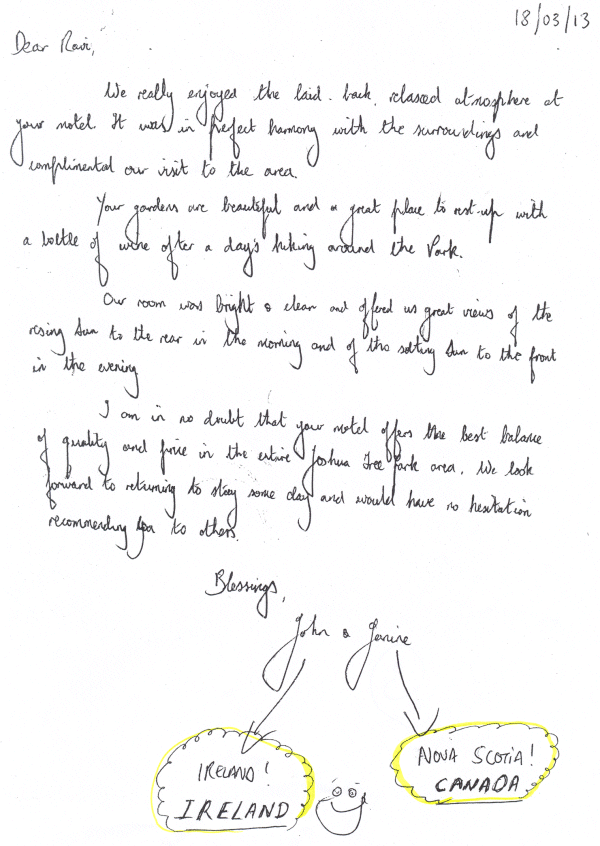 18/03/13
Dear Ravi,
We really enjoyed the laid-back, relaxed atmosphere at
your motel. It was in perfect harmony with the surroundings and
complimented our visit to the area.
Your gardens are beautiful and a great place to rest-up with
a bottle of wine after a day's hiking around the Park.
Our room was bright & clean and offered us great views of the
rising sun to the rear in the morning and of the setting sun to the front
in the evening
I am in no doubt that your motel offers the best balance
of quality and price in the entire Joshua Tree Park area. We look
forward to returning to stay some day and would have no hesitation
recommending you to others.
Blessings,
John & Janine
IRELAND! NOVA SCOTIA!
IRELAND CANADA